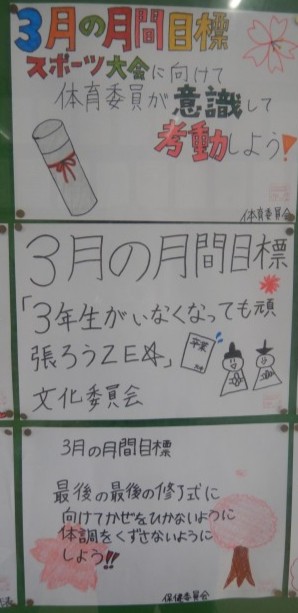 3月の月間目標
スポーツ大会に向けて
体育委員が意識して
考動しよう!
体育委員会
3月の月間目標
「3年生がいなくなっても頑
張ろうZE☆」
卒業
文化委員会
3月の月間目標
最後の最後の修了式に
向けてかぜをひかないように
体調をくずさないように
しよう!!
保健委員会